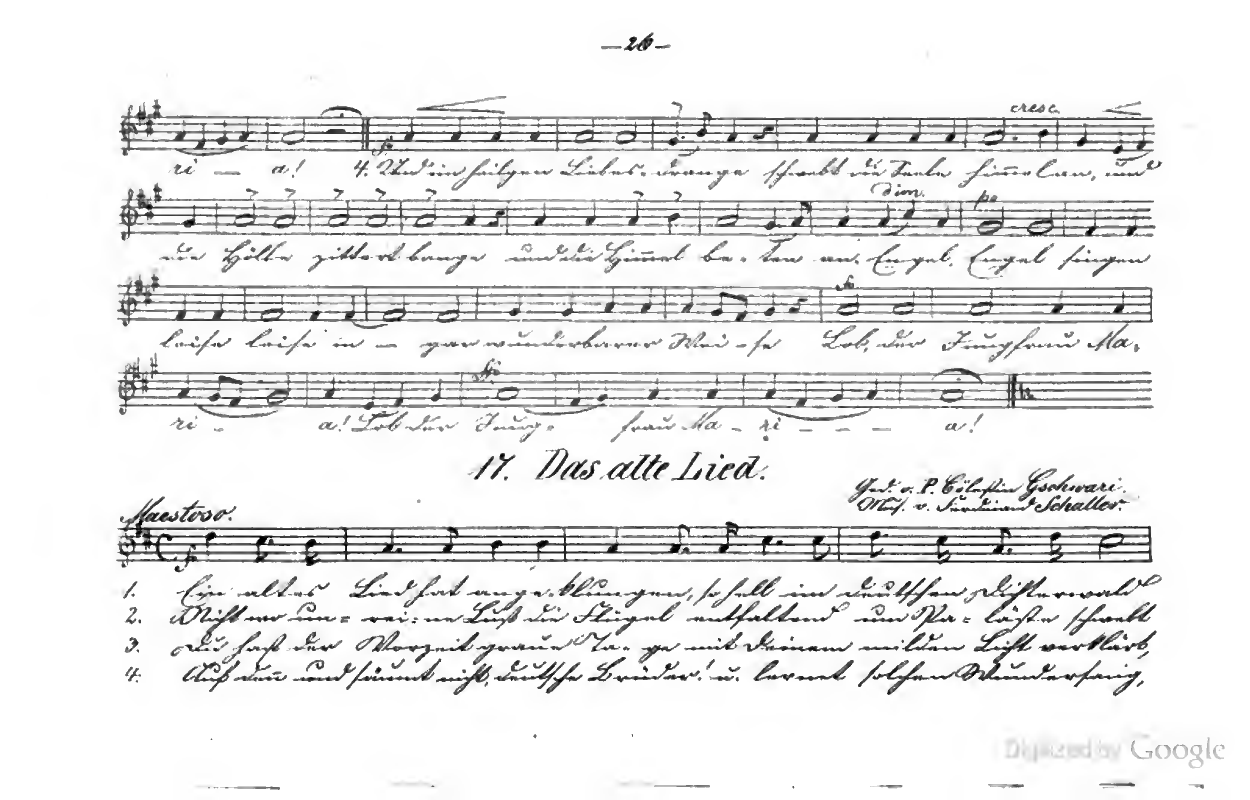 –26–
cresc.
ri – a! 4. Und im heil'gen Liebes-drange schwebt die Seele him̅elan, und
dim. po
die Hölle zittert bange und die Him̅el be-ten an. Engel, Engel singen
fo
leise leise in – gar wunderbarer Wei-se Lob, der Jungfrau Ma-
ri – a! Lob der Jung- frau Ma – ri – – – a!
17. Das alte Lied.
Ged. v. P. Cölestin Gschwari.
Maestoso. Mus. v. Ferdinand Schaller.
1. Ein altes Lied hat angeklungen, so hell im deutschen Dichterwald
2. Nicht wo un- rei-ne Lust die Flügel entfaltend um Pa-läste schwebt
3. Du hast der Vorzeit graue Ta-ge mit deinem milden Licht verklärt,
4. Auf den̅ und säumt nicht, deutsche Brüder! u. lernet solchen Wundersang,
Digitized by Google